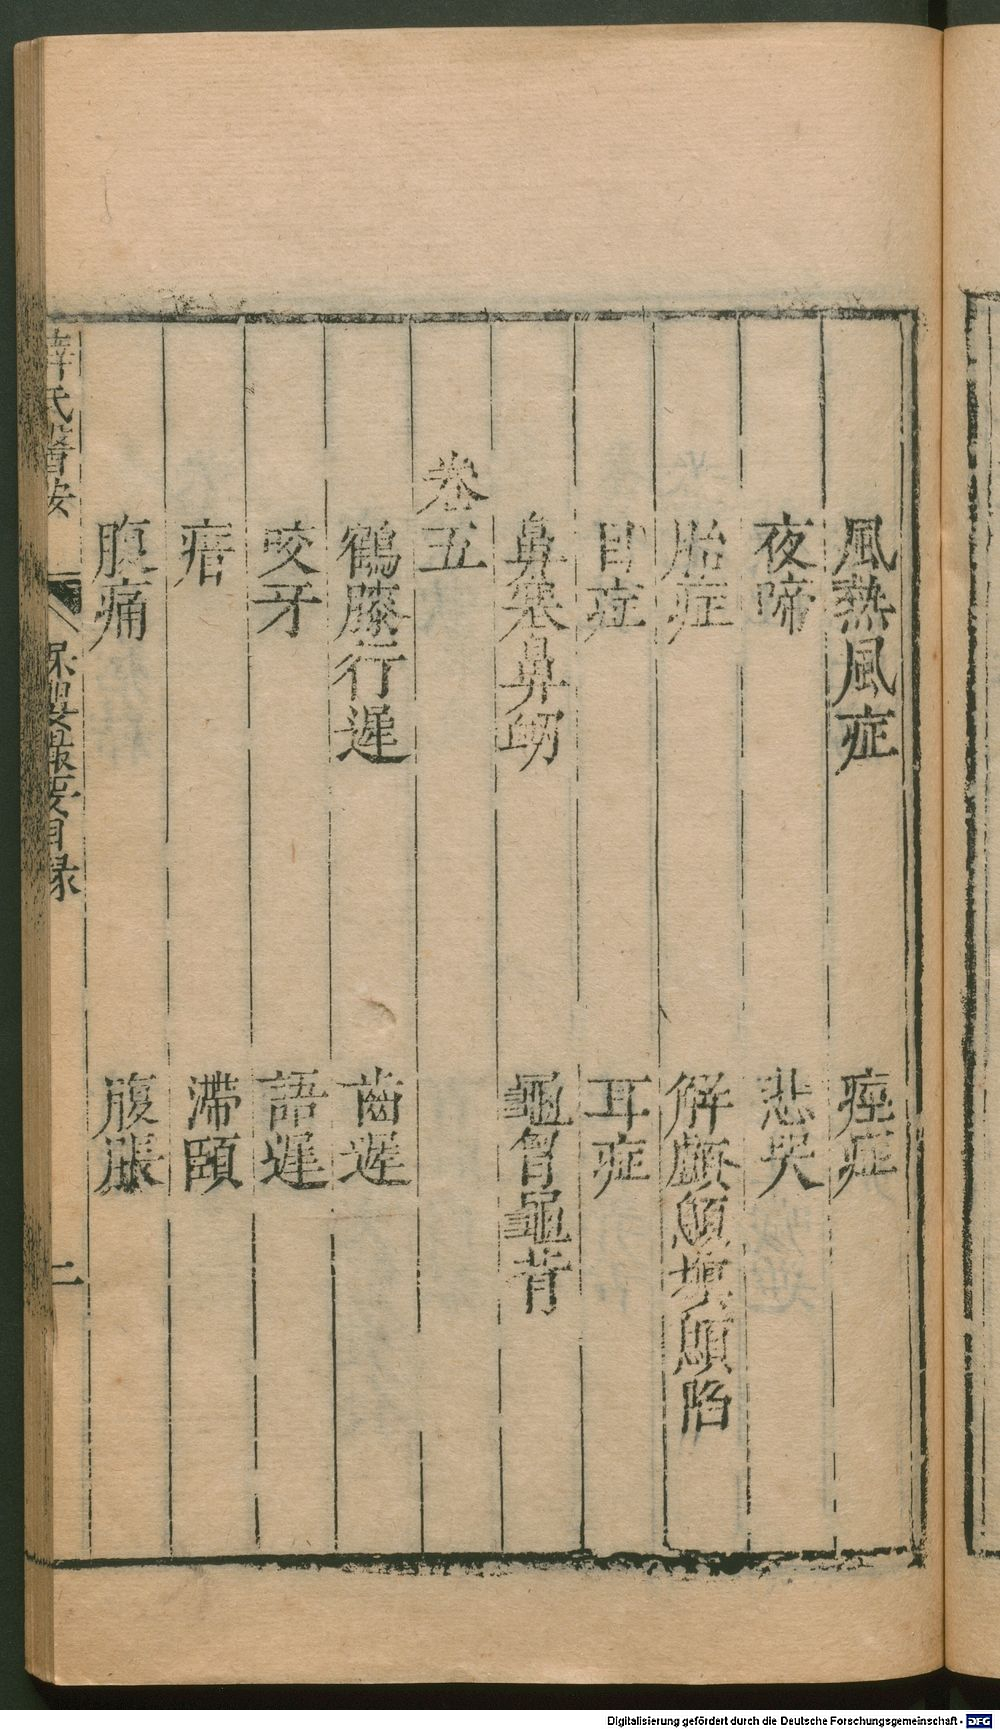 風熱風症 痙症
夜啼 悲哭
胎症 解顱顖填顖陷
目症 耳症
鼻塞鼻衂 龜胷龜背
卷五
鶴膝行遲 齒遲
咬牙 語遲
瘖 滯頤
腹痛 腹脹
薛氏醫按 保嬰撮要目録 二
Digitalisierung gefördert durch die Deutsche Forschungsgemeinschaft - DFG